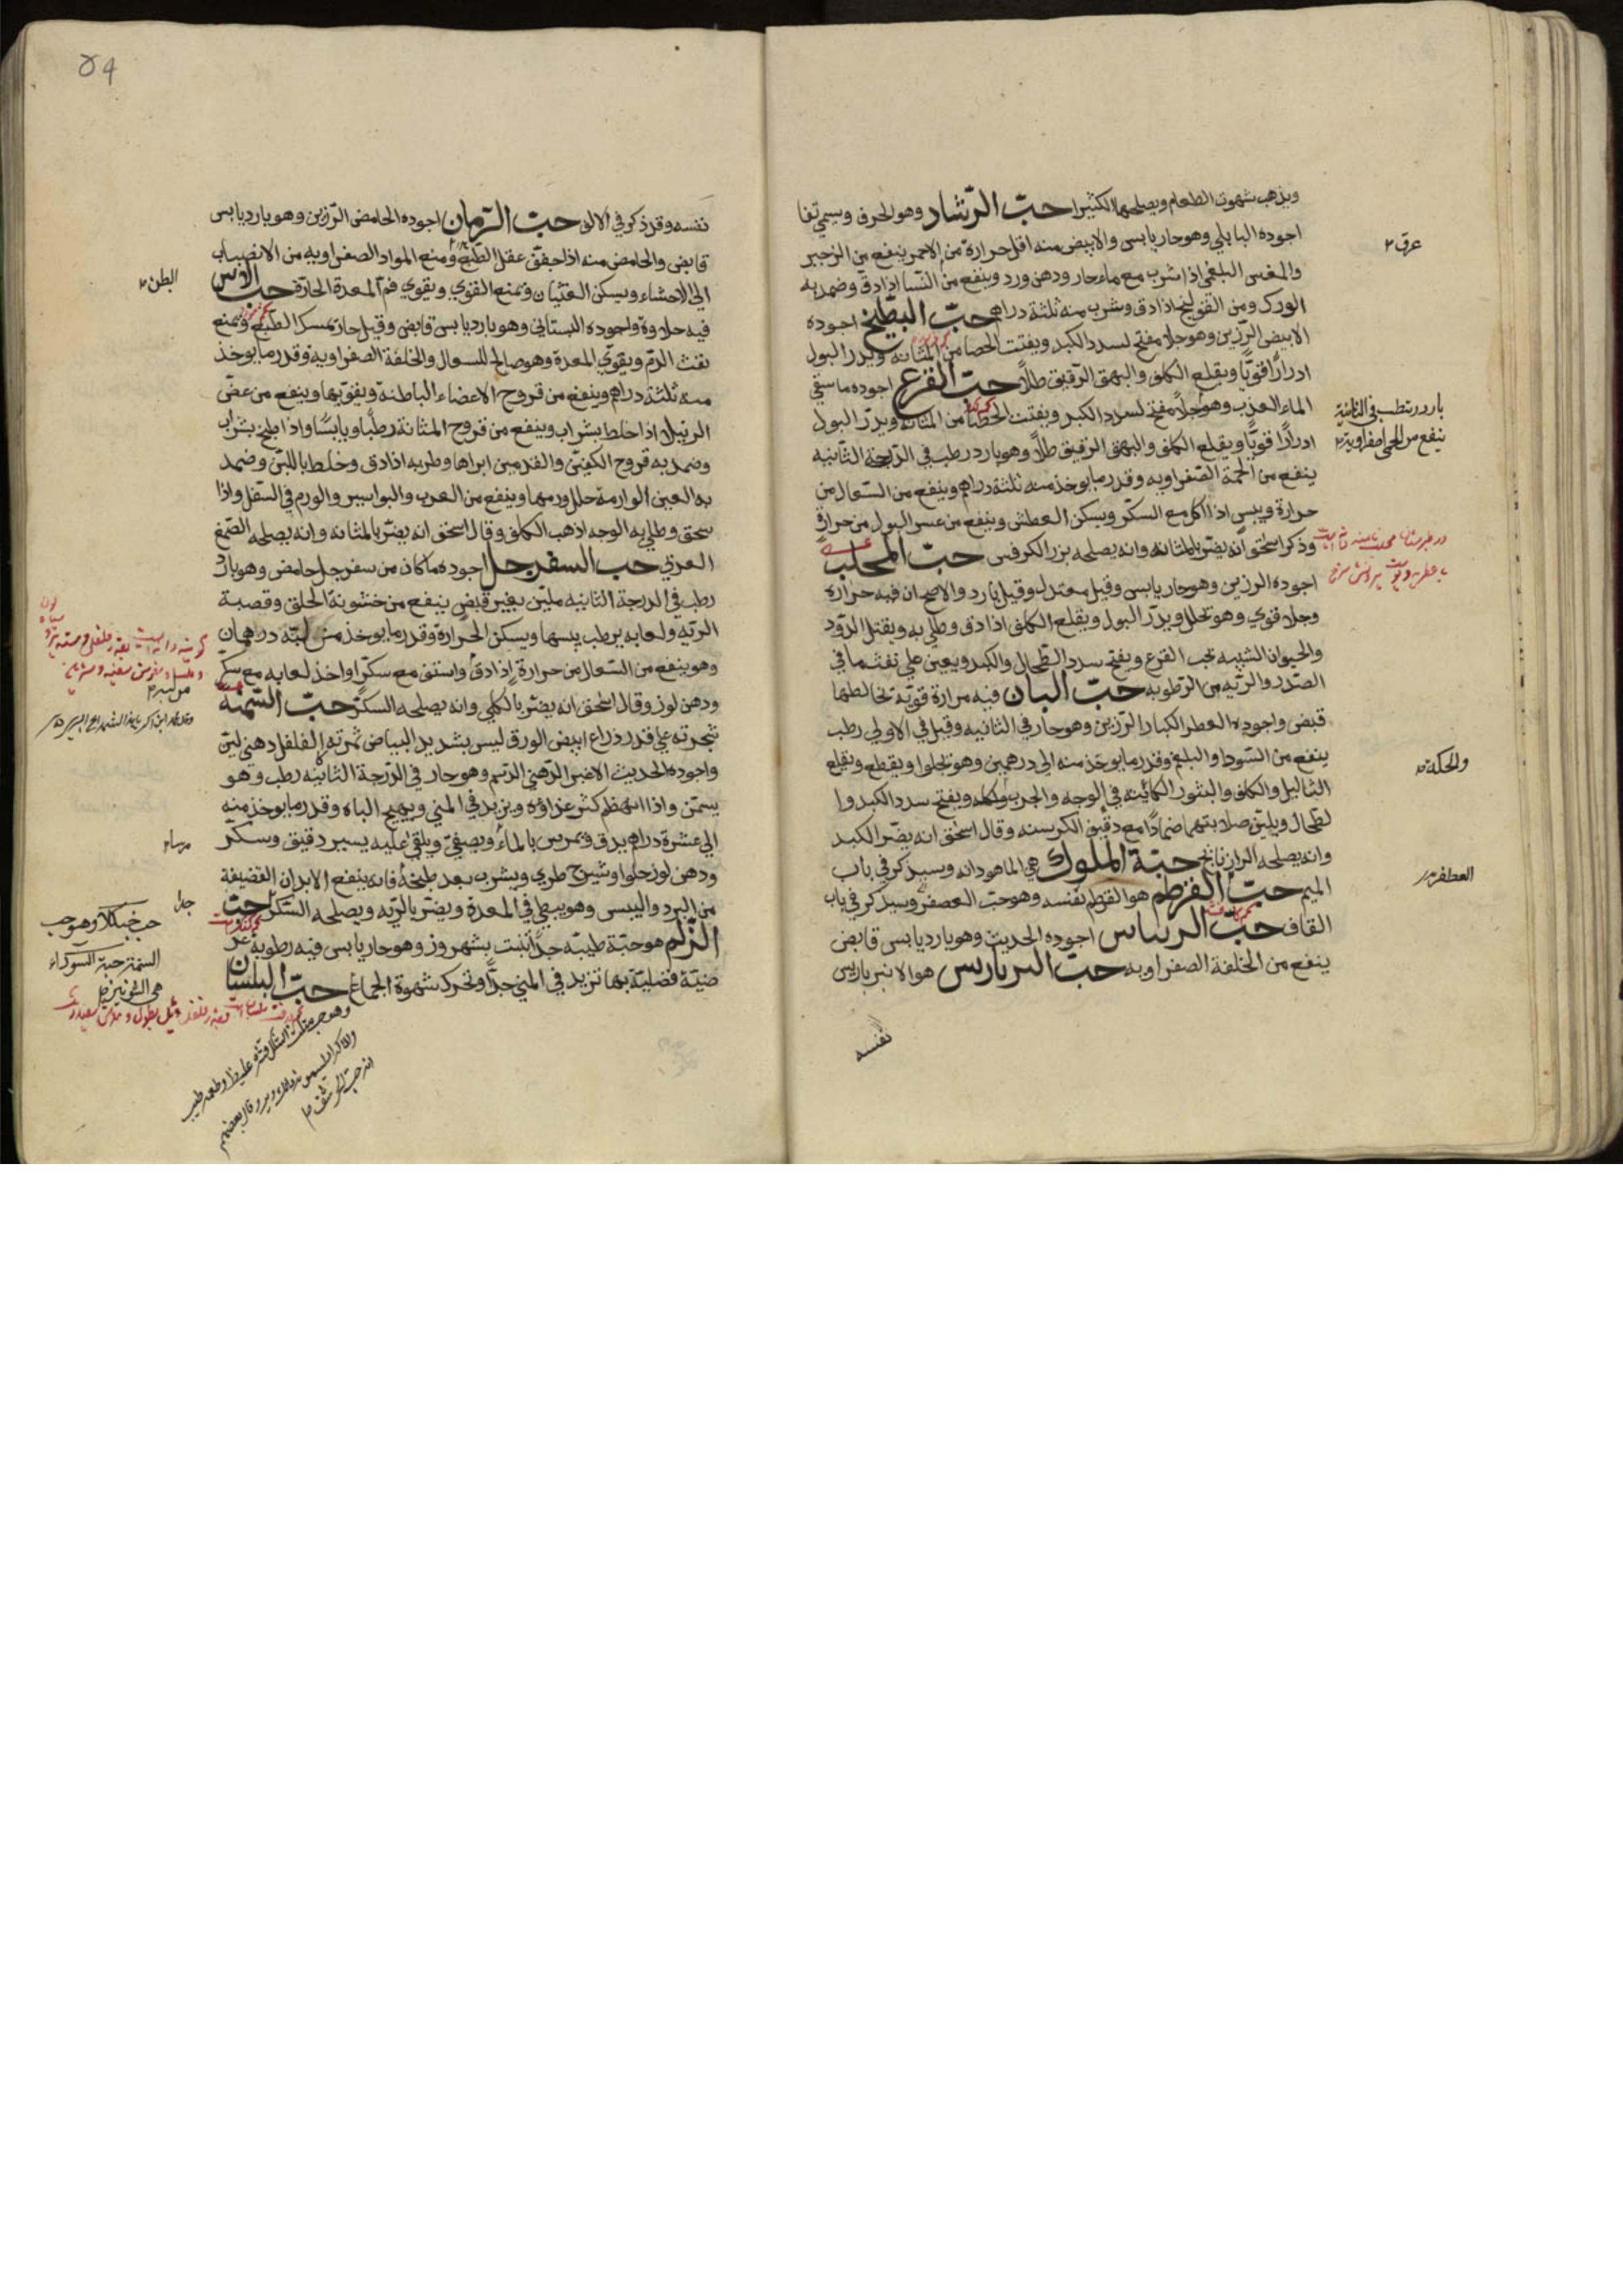 ويذهب شهوت الطعام ويصلحها الكثيرا حبّ الرّشاد وهو الحرف ويسمي تفا
اجوده البابلي وهو حار يابس والابيض منه اقل حرارة من الاحمر ينفع من الزحير
والمغس البلغمي اذا شرب مع ماء حار ودهن ورد وينفع من النّسا اذا دقّ وضمد به
الورك ومن القولنج اذا دق وشرب منه ثلثة دراهم حبّ البطّيخ اجوده
الابيض الرّزين وهو جلا مفتح لسدد الكبد ويفتت الحصا من المثانه ويدر البول
ادرارًا قويًا ويقلع الكلف والبهق الرّقيق طلاً حبّ القرع اجوده ما سقي
الماء العذب وهو جلاً مفتح لسدد الكبد ويفتت الحصا من المثانه ويدرّ البول
ادرارًا قويًا ويقلع الكلف والبهق الرّقيق طلاً وهو بارد رطب في الدّرجة الثّانيه
ينفع من الحمة الصّفراويه وقدر ما يوخذ منه ثلثة دراهم وينفع من السّعال من
حرارة ويبس اذا اكل مع السكّر ويسكن العطش وينفع من عسر البول من حرارةٍ
وذكر اسحٰق انّه يضرّ بالمثانه وانه يصلحه بزر الكرفس حبّ المحلب
اجوده الرزين وهو حار يابس وقيل معتدل وقيل بارد والاصح ان فيه حرارة
وجلا قوي وهو تحلل ويدرّ البول ويقلع الكلف اذا دق وطلي به ويقتل الدّود
والحيوان الشبيه بحب القرع ويفتح سدد الطّحال والكبد ويعين علي نفث ما في
الصّدر والرّيه من الرّطوبه حبّ البان فيه مرارة قويّه تخالطها
قبض واجوده العطر الكبار الرّزين وهو حار في الثانيه وقيل في الاولي رطب
ينفع من السّودا والبلغم وقدر ما يوخذ منه الي درهمين وهو تجلوا ويقطع ويقلع
الثاليل والكلف والبثور الكائينه في الوجه والجرب والحكه ويفتح سدد الكبد وا
لطحال ويلين صلابتهما ضمادًا مع دقيق الكرسنه وقال اسحٰق انه يضرّ الكبد
وانه يصلحه الرازيانج حبّة الملوك هي الماهودانه وسيذكر في باب
الميم حبّ القرطم هو القرطم نفسه وهو حبّ العصفر وسيذكر في باب
القاف حبّ الريباس اجوده الحديث وهو بارد يابس قابض
ينفع من الخلفة الصفراويه حبّ البرباريس هو الانبرباريس
نفسه
عرق
بارد رطب في الثانية
ينفع من الحمي الصفراوية
والحكة
العصفر
نفسه وقد ذكر في الالف حبّ الرّمان اجوده الحامض الرّزين وهو بارد يابس
قابض والحامض منه اذا جفف عقل الطّبع ومنع المواد الصفراويه من الانصباب
الي الاحشاء ويسكن الغثيان ويمنع القوي ويقوي فم المعدة الحارّة حب الاس
فيه حلاوة واجوده البستاني وهو بارد يابس قابض وقيل حار يمسك الطّبع ويمنع
نفث الدّم ويقوي المعدة وهو صالح للسعال والخلفة الصفراوية وقدر ما يوخذ
منه ثلثة دراهم وينفع من قروح الاعضاء الباطنه ويقويها وينفع من عضّ
الرتيلا اذا خلط بشراب وينفع من قروح المثانة رطبًا ويابسًا واذا طبخ بشراب
وضمد به قروح الكفين والقدمين ابراها وطريه اذا دق وخلط باللبن وضمد
به العين الوارمة حلل ورمها وينفع من الغرب والبواسير والورم في السّفل واذا
سحق وطلي به الوجه اذهب الكلف وقال اسحٰق انه يضرّ بالمثانه وانه يصلحه الصّمغ
العربي حب السفرجل اجوده ما كان من سفرجل حامض وهو بارد
رطب في الدرجة الثانيه مليّن بغير قبض ينفع من خشونة الحلق وقصبة
الريه ولعابه يرطب يبسها ويسكن الحرارة وقدر ما يوخذ من لبّه درهمان
وهو ينفع من السّعال من حرارة اذا دق واستف مع سكر او اخذ لعابه مع سكّر
ودهن لوز وقال اسحٰق انه يضرّ بالكلي وانه يصلحه السكّر حبّ السّمنة
شجرته علي قدر ذراع ابيض الورق ليس بشديد البياض ثمرته كالفلفل دهني ليّن
واجوده الحديث الاغبر الدّهني الدّسم وهو حار في الدّرجة الثانيه رطب وهو
يسمّن واذا انهضم كثر غذاؤه ويزيد في المني ويهيج الباه وقدر ما يوخذ منه
الي عشرة دراهم يدق ويمرس بالماء ويصفيّ ويلقي عليه يسير دقيق وسكّر
ودهن لوز حلوا وشيرج طري ويشرب بعد طبخه فانه ينفع الابدان القضيفة
من البرد واليبس وهو يبطي في المعدة ويضرّ بالرّيه ويصلحه السّكر حبّ
الزّلم هو حبّة طيبه جدًّا ينبت بشهروز وهو حار يابس فيه رطوبه عر
ضيّة فضليّة بها تزيد في المني جدًّا وتحرك شهوة الجماع حبّ البلسان
البطن
جدا
السمنة حبة السوداء
هي الشونيز